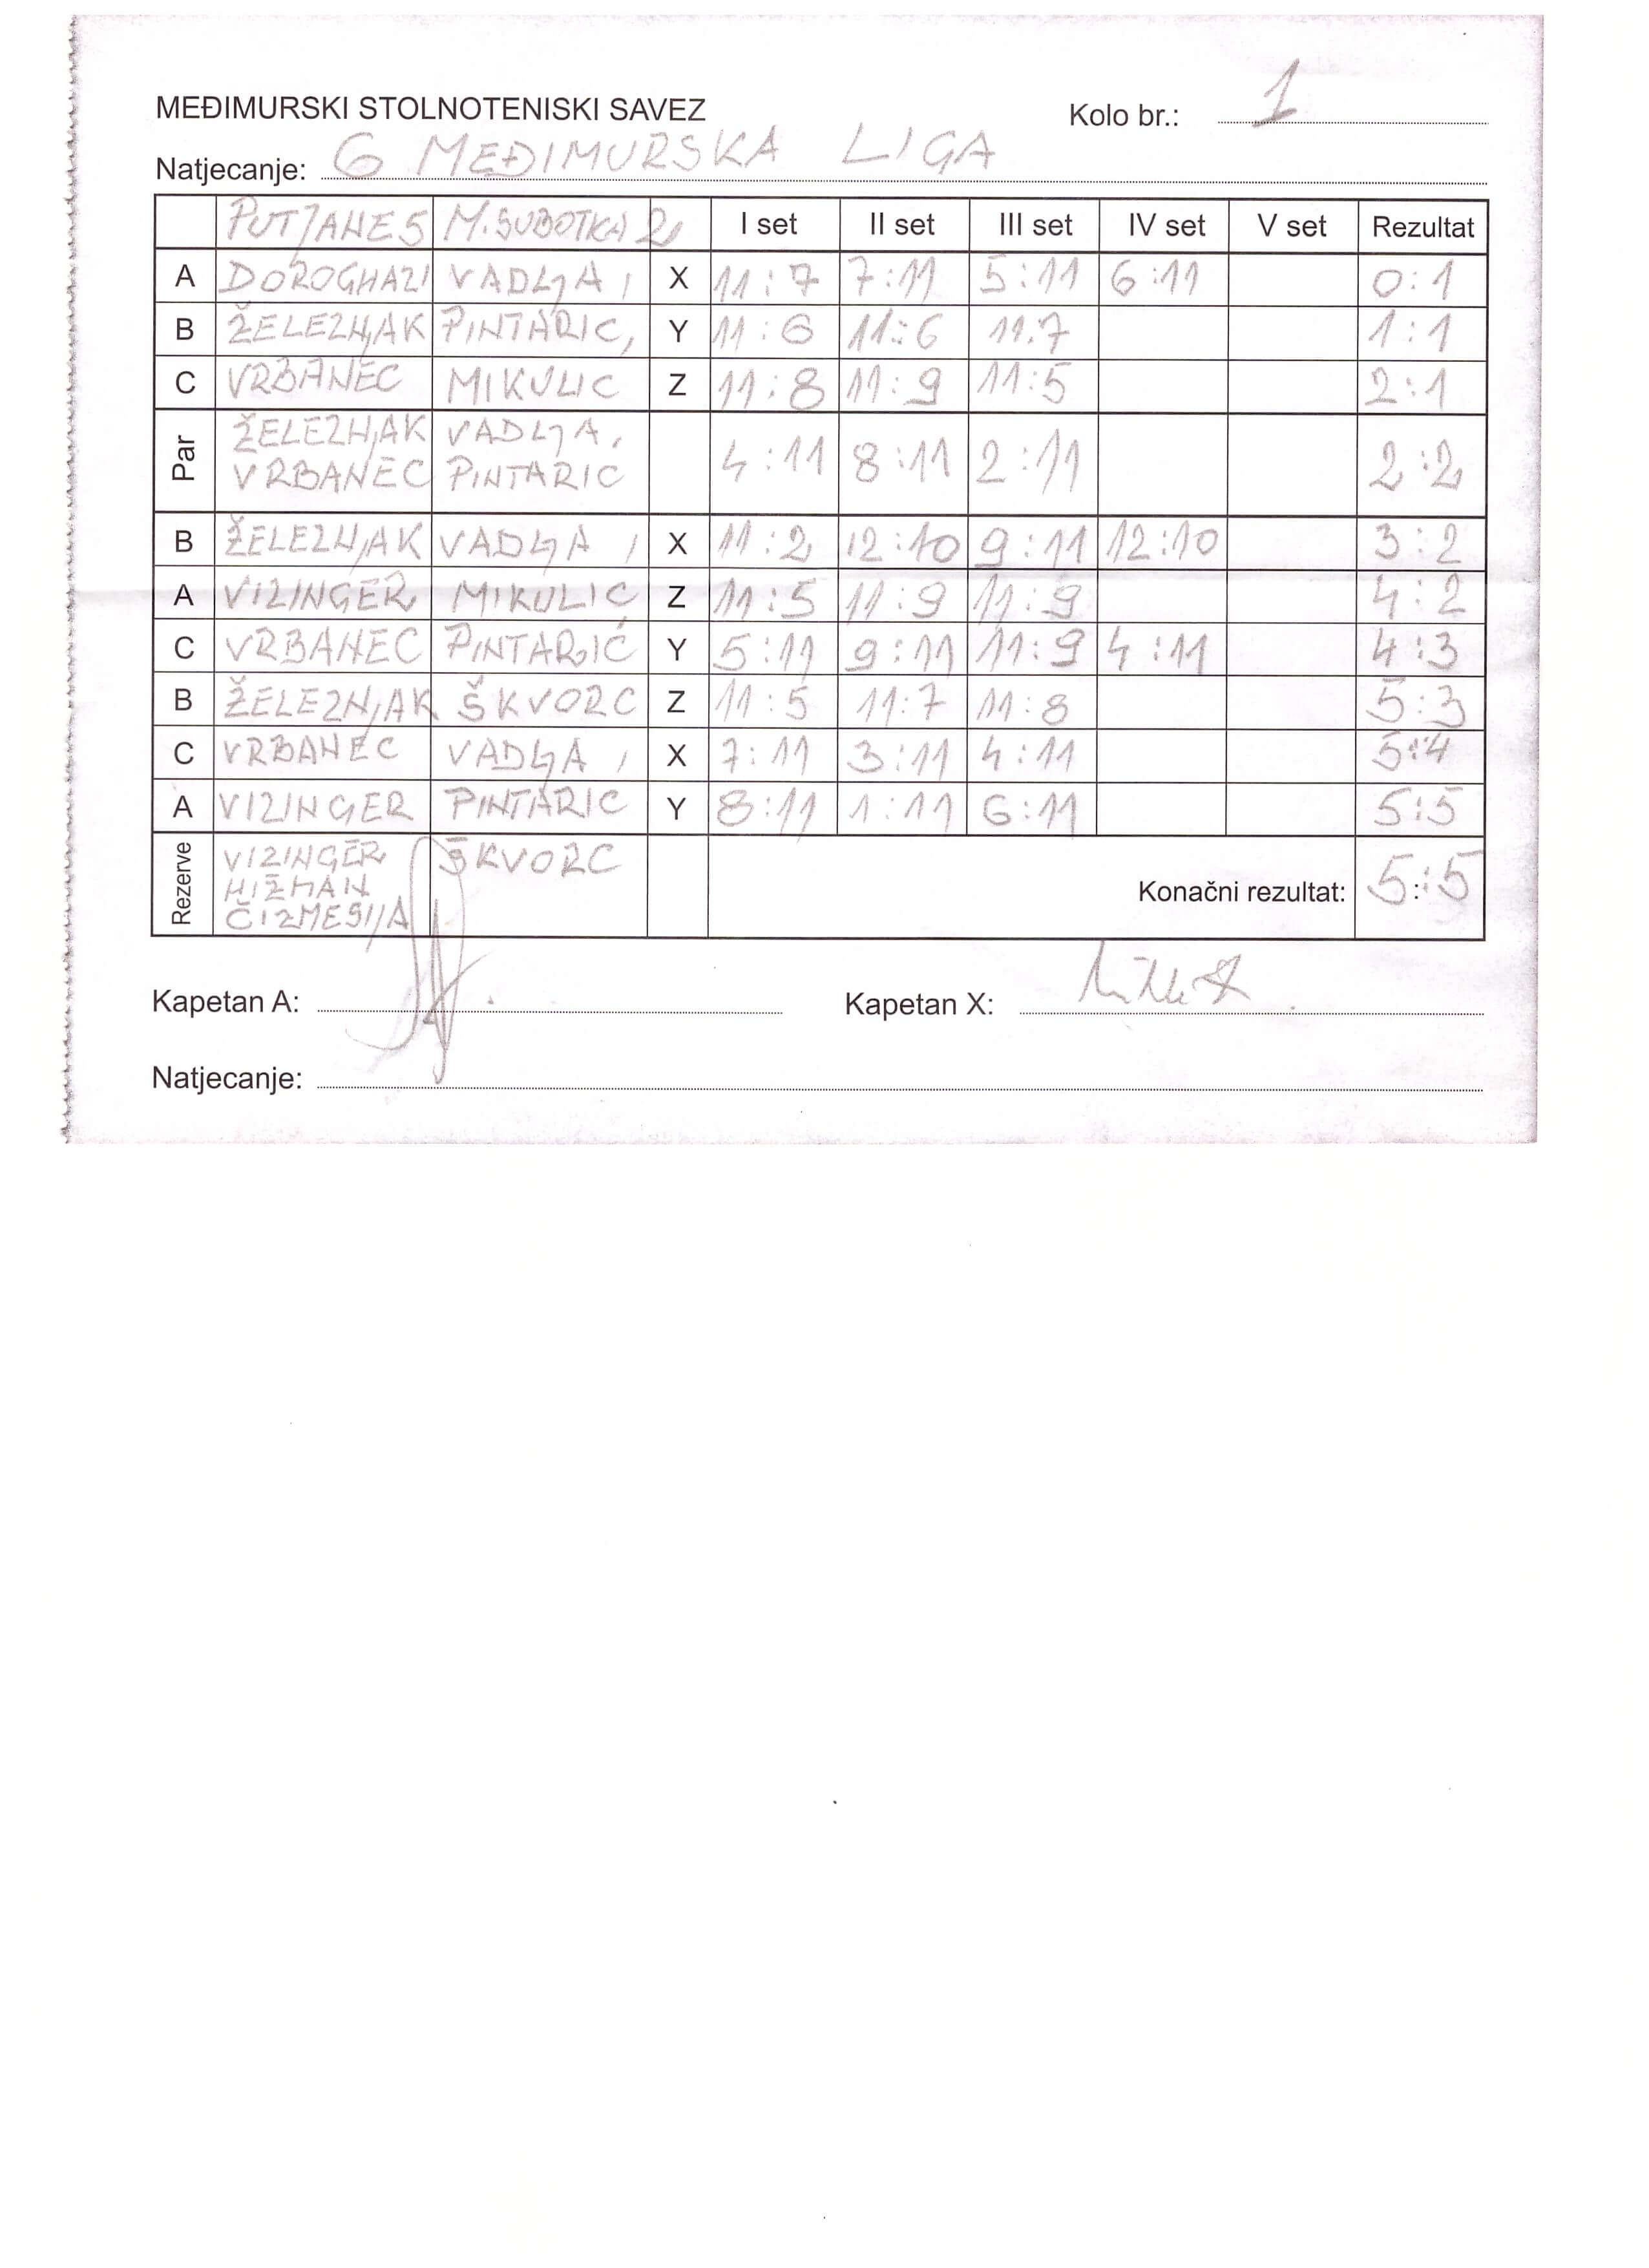 MEĐIMURSKI STOLNOTENISKI SAVEZ Kolo br.: 1
Natjecanje: 6 MEĐIMURSKA LIGA
PUTJANE 5 M. SUBOTICA 2 I set II set III set IV set V set Rezultat
A DOROGHAZI VADLJA, X 11:7 7:11 5:11 6:11 0:1
B ŽELEZNJAK PINTARIC, Y 11:6 11:6 11:7 1:1
C VRBANEC MIKULIC Z 11:8 11:9 11:5 2:1
Par ŽELEZNJAK VADLJA, 4:11 8:11 2:11 2:2
VRBANEC PINTARIC
B ŽELEZNJAK VADLJA, X 11:2 12:10 9:11 12:10 3:2
A VIZINGER MIKULIĆ Z 11:5 11:9 11:9 4:2
C VRBANEC PINTARIĆ Y 5:11 9:11 11:9 4:11 4:3
B ŽELEZNJAK ŠKVORC Z 11:5 11:7 11:8 5:3
C VRBANEC VADLJA, X 7:11 3:11 4:11 5:4
A VIZINGER PINTARIC Y 8:11 1:11 6:11 5:5
Rezerve VIZINGER ŠKVORC Konačni rezultat: 5:5
HIŽMAN
ČIZMESIJA
Kapetan A: Kapetan X:
Natjecanje: